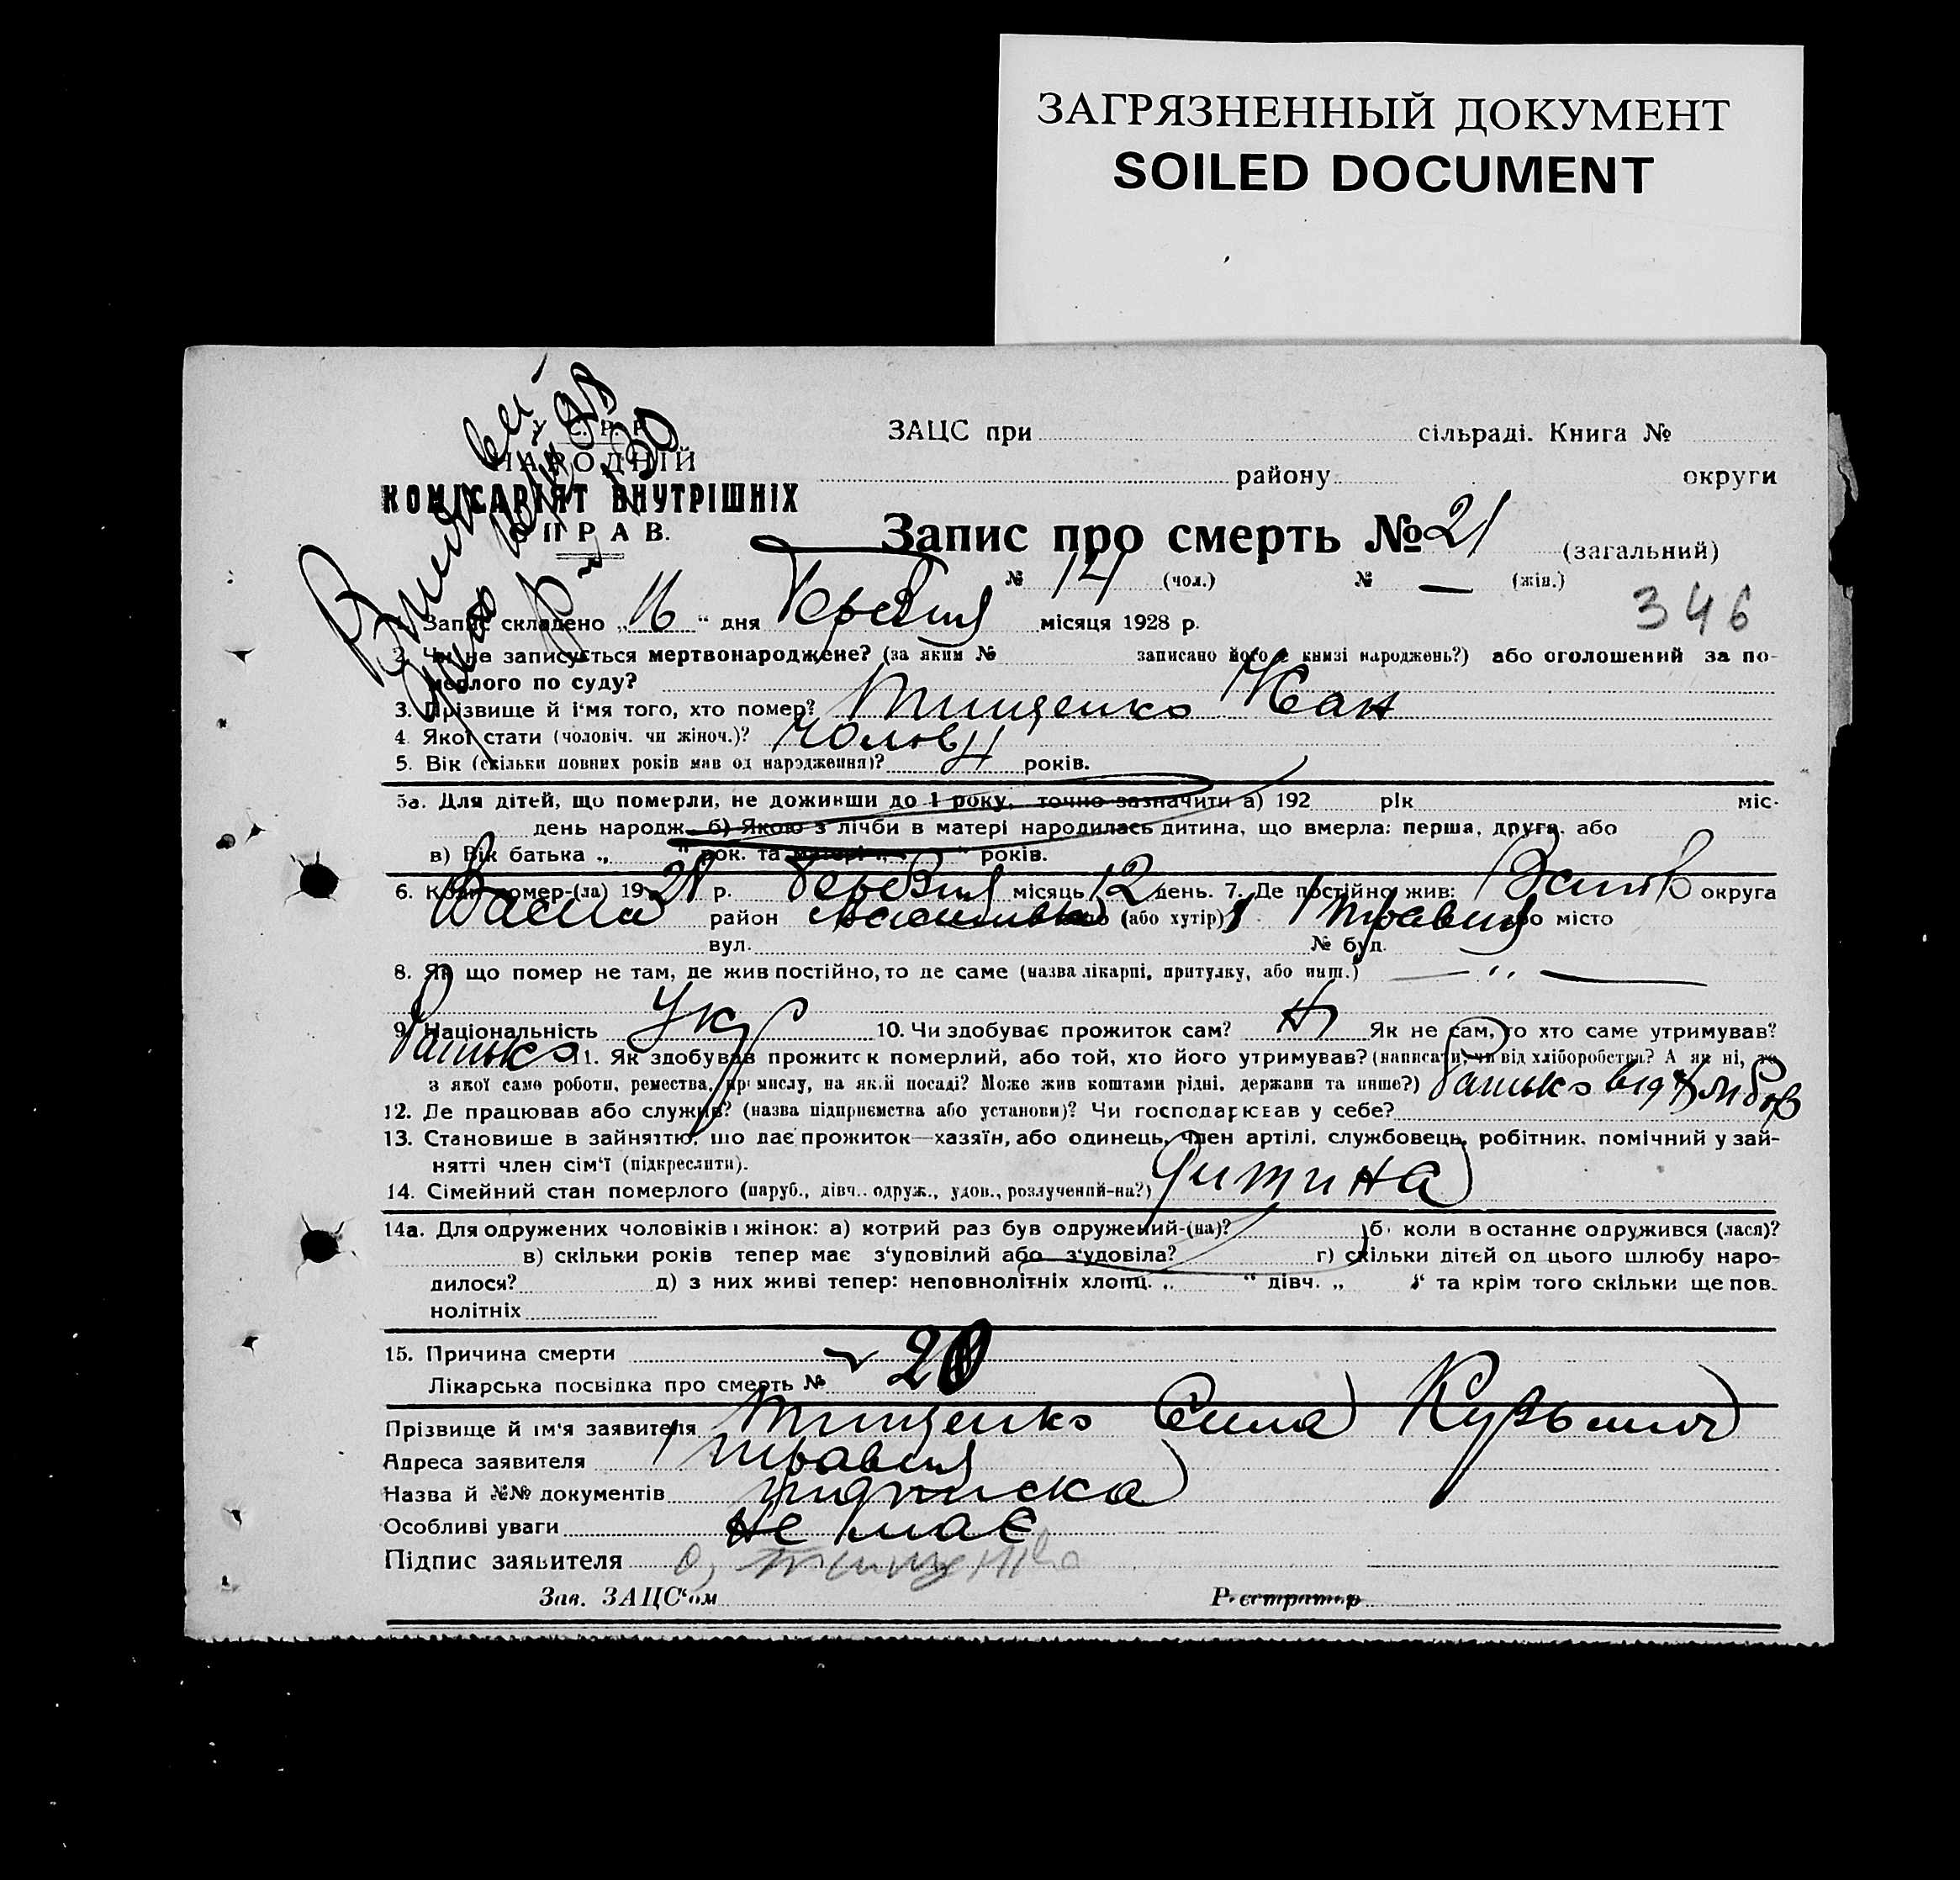 ЗАГРЯЗНЕННЫЙ ДОКУМЕНТ
SOILED DOCUMENT
У. С. Р. Р.
НАРОДНІЙ
КОМІСАРІЯТ ВНУТРІШНІХ
СПРАВ.
ЗАЦС при сільраді. Книга №
району округи
Запис про смерть № 21 (загальний)
№ 14 (чол.) № — (жін.)
346
1. Запис складено „16“ дня Березня місяця 1928 р.
2. Чи не записується мертвонароджене? (за яким № записано його в книзі народжень?) або оголошений за по-
мерлого по суду?
3. Прізвище й ім'я того, хто помер? Тищенко Иван
4. Якої стати (чоловіч. чи жіноч.)? Чолов
5. Вік (скільки повних років мав од народження)? 4 років.
5а. Для дітей, що померли, не доживши до 1 року, точно зазначити а) 192 рік міс.
день народж. б) Якою з лічби в матері народилась дитина, що вмерла: перша, друга, або
в) Вік батька „ “ рок. та матері „ “ років.
6. Коли помер-(ла) 1928 р. Березня місяць 12 день. 7. Де постійно жив: округа
район (або хутір) 1 Травня або місто
вул. № буд.
8. Як що помер не там, де жив постійно, то де саме (назва лікарні, притулку, або инш.) — „ —
9. Національність Укр 10. Чи здобуває прожиток сам? Ні Як не сам, то хто саме утримував?
Батько 11. Як здобував прожиток померлий, або той, хто його утримував? (написати, чи від хліборобства? А як ні, то
з якої само роботи, ремества, промислу, на якій посаді? Може жив коштами рідні, держави та инше?) Батько від хлібор
12. Де працював або служив? (назва підприємства або установи)? Чи господарював у себе?
13. Становище в зайняттю, що дає прожиток—хазяїн, або одинець, член артілі, службовець, робітник, помічний у зай-
нятті член сім'ї (підкреслити).
14. Сімейний стан померлого (паруб., дівч.. одруж., удов., розлучений-на?) дитина
14а. Для одружених чоловіків і жінок: а) котрий раз був одружений-(на)? б) коли востаннє одружився (лася)?
в) скільки років тепер має з'удовілий або з'удовіла? г) скільки дітей од цього шлюбу наро-
дилося? д) з них живі тепер: неповнолітніх хлопц. „ “ дівч. „ “ та крім того скільки ще пов-
нолітніх
15. Причина смерти 20
Лікарська посвідка про смерть №
Прізвище й ім'я заявителя Тищенко Сила Кузьмич
Адреса заявителя 1 травня
Назва й №№ документів підписка
Особливі уваги не має
Підпис заявителя
Зав. ЗАЦС'ом Реєстратор